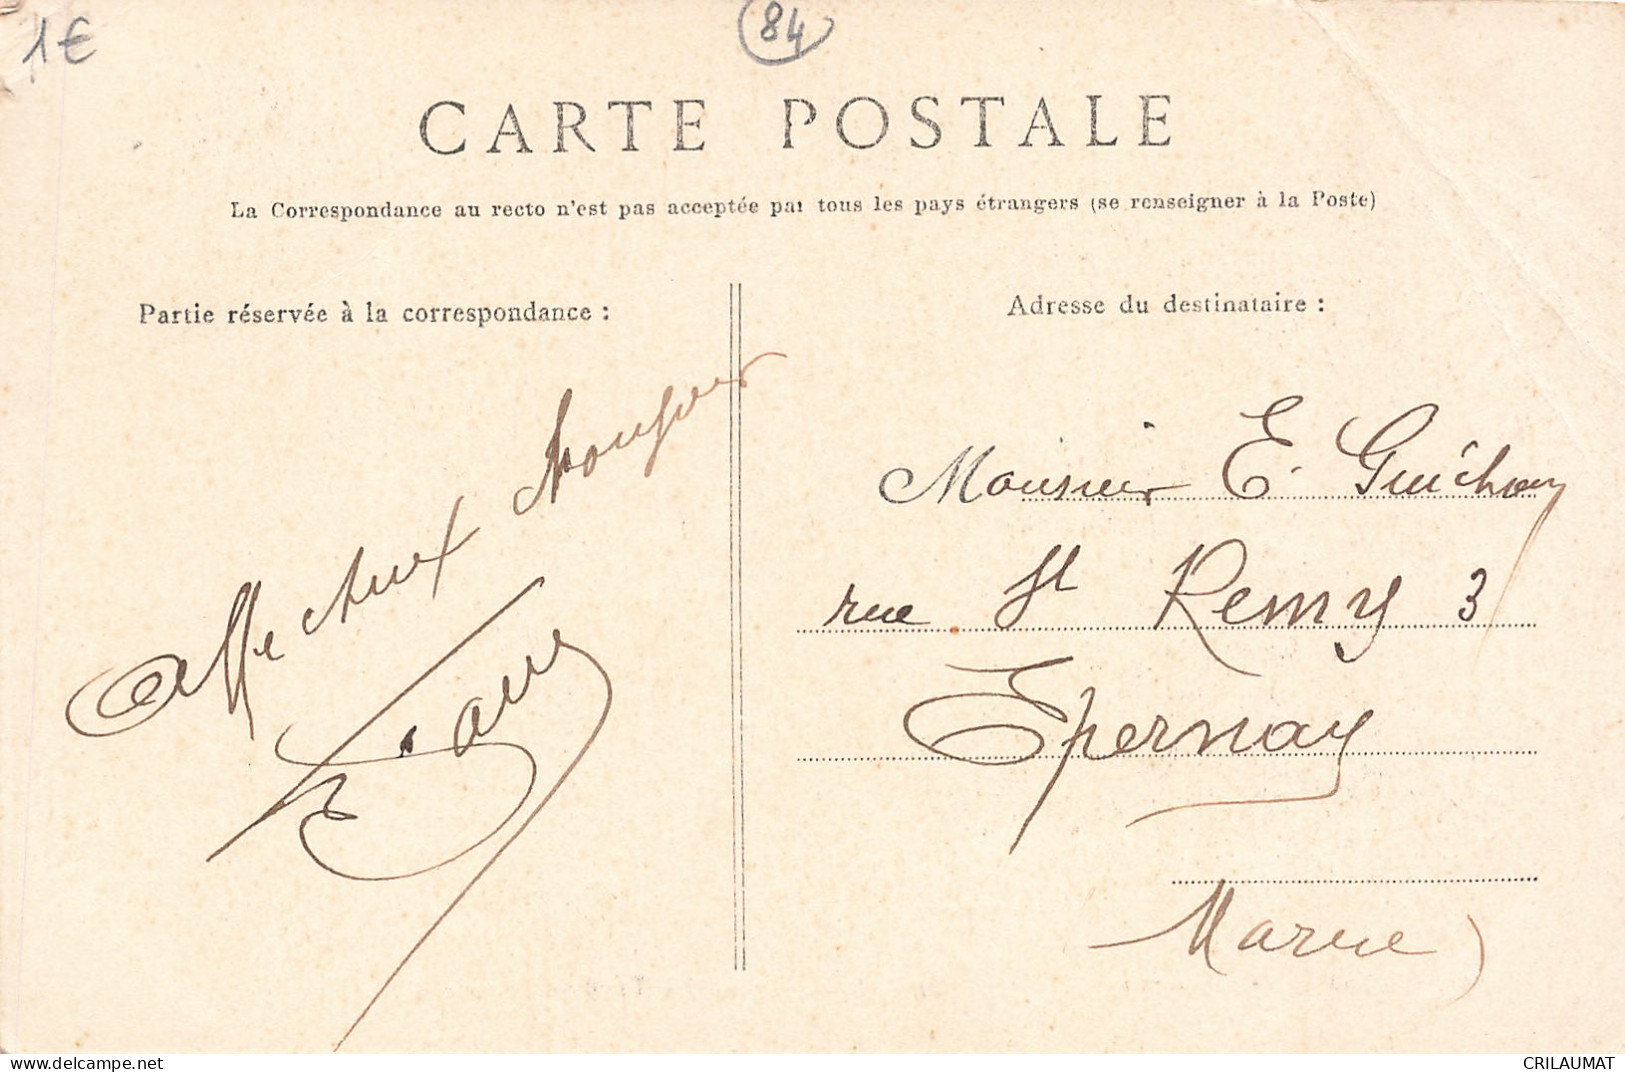 1€
84
CARTE POSTALE
La Correspondance au recto n'est pas acceptée par tous les pays étrangers (se renseigner à la Poste)
Partie réservée à la correspondance :
Affectueux bonjour
Adresse du destinataire :
Monsieur E. Guichon
rue St Remy 3
Epernay
Marne)
delcampe.net
CRILAUMAT